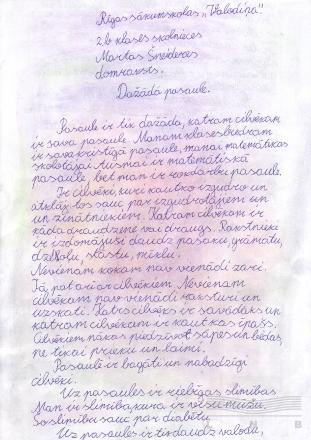 Rīgas sākumskolas „Valodiņa"
2.b klases skolnieces
Martas Šneideres
domraksts.
Dažādā pasaule.
Pasaule ir tik dažāda, katram cilvēkam
ir sava pasaule. Manam klasesbiedram
ir sava kristīgā pasaule, manai matemātikas
skolotājai Ausmai ir matemātiskā
pasaule, bet man ir pasaule.
Ir cilvēki, kuri kaut ko izgudro un
atklāj, tos sauc par izgudrotājiem un
un zinātniekiem. Katram cilvēkam ir
kāda draudzene vai draugs. Rakstnieki
ir izdomājuši daudz pasaku, grāmatu,
dzejolu, stāstu, mīklu.
Nevienam kokam nav vienādi zari.
Tā, pat arī ar cilvēkiem. Nevienam
cilvēkam nav vienādi raksturi un
uzskati. Katrs cilvēks ir savādāks un
katram cilvēkam ir kaut kas īpašs.
Cilvēkiem nākas piedzīvot sāpes un bēdas,
ne tikai prieku un laimi.
Pasaulē ir bagāti un nabadzīgi
cilvēki.
Uz pasaules ir riebīgas slimības
Man ir slimība, kura ir visu mūžu.
So slimību sauc par diabētu.
Uz pasaules ir tik daudz valodu,